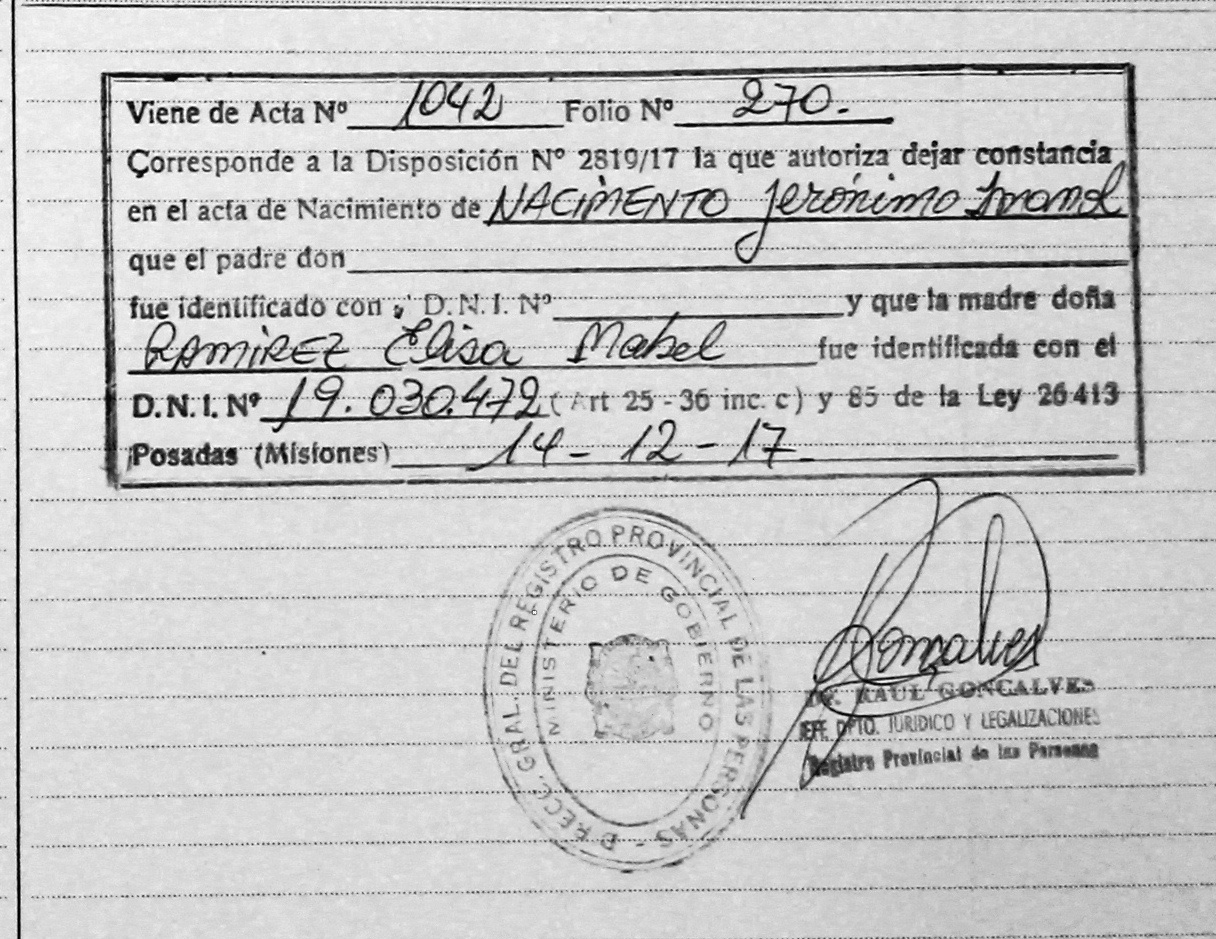 Viene de Acta Nº 1042 Folio Nº 270.-
Corresponde a la Disposición Nº 2819/17 la que autoriza dejar constancia
en el acta de Nacimiento de NACIMENTO Jerónimo
que el padre don
fue identificado con D.N.I. Nº y que la madre doña
RAMIREZ Elisa Mabel fue identificada con el
D.N.I. Nº 19.030.472 (Art 25-36 inc. c) y 85 de la Ley 26413
Posadas (Misiones) 14-12-17
GRAL. DEL REGISTRO PROVINCIAL DE LAS PERSONAS -
MINISTERIO DE GOBIERNO
Goncalves
DR. RAUL GONCALVES
JEFE DPTO. JURIDICO Y LEGALIZACIONES
Registro Provincial de las Personas